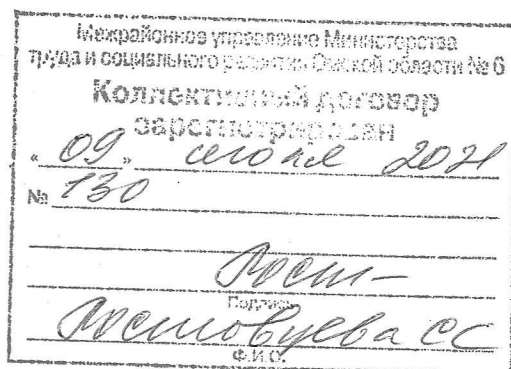 Межрайонное управление Министерства
труда и социального развития Омской области № 6
Коллективный договор
зарегистрирован
« 09 » 2021
№ 130
Подпись
Ростовцева СС
Ф.И.О.